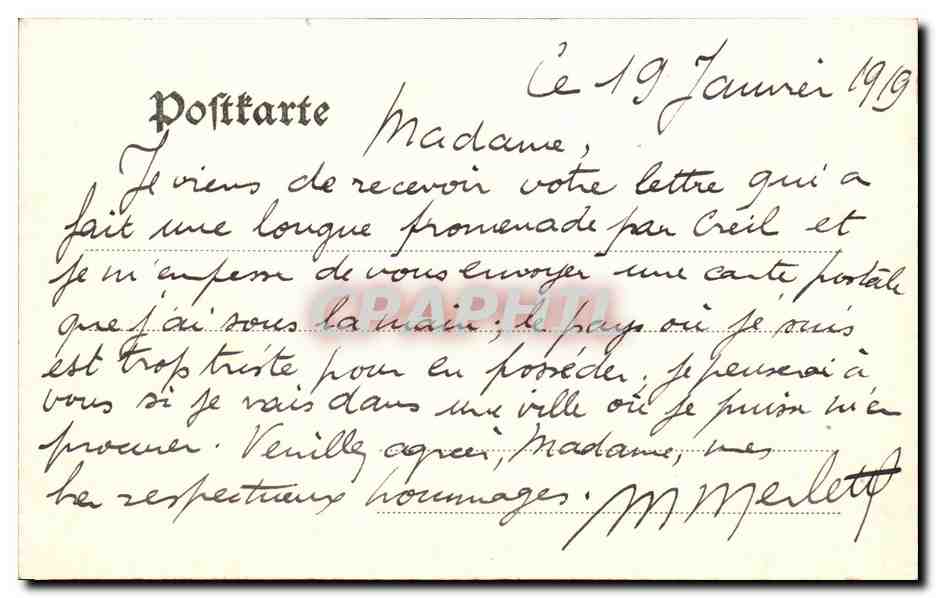 Ce 19 Janvier 1919
Postkarte
Madame,
Je viens de recevoir votre lettre qui a
fait une longue promenade par Creil et
je m'empresse de vous envoyer une carte postale
CPAPHIL
que j'ai sous la main ; le pays où je suis
est trop triste pour en posséder, je penserai à
vous si je vais dans une ville où je puisse m'en
procurer. Veuillez agréer, Madame, mes
respectueux hommages.